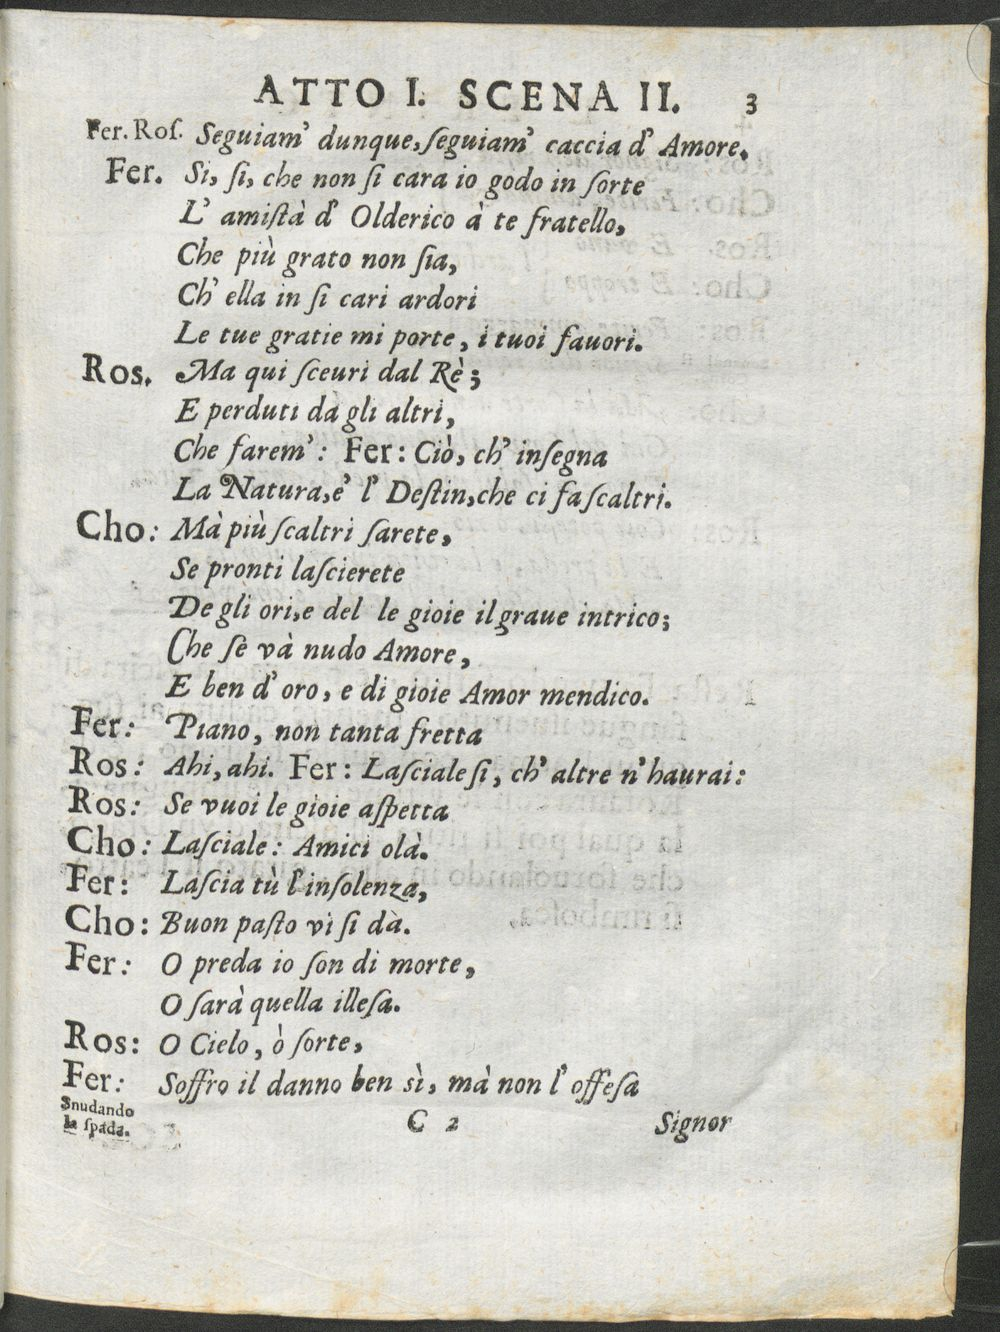 ATTO I. SCENA II. 3
Fer. Roſ. Seguiam' dunque, ſeguiam' caccia d' Amore.
Fer. Si, ſi, che non ſi cara io godo in ſorte
L' amiſtà d' Olderico à te fratello,
Che più grato non ſia,
Ch' ella in ſi cari ardori
Le tue gratie mi porte, i tuoi fauori.
Ros. Ma qui ſceuri dal Rè;
E perduti dà gli altri,
Che farem': Fer: Ciò, ch' inſegna
La Natura, e' l' Deſtin, che ci fa ſcaltri.
Cho: Mà più ſcaltri ſarete,
Se pronti laſcierete
De gli ori, e del le gioie il graue intrico;
Che ſe và nudo Amore,
E ben d' oro, e di gioie Amor mendico.
Fer: Piano, non tanta fretta
Ros: Ahi, ahi. Fer: Laſciale ſi, ch' altre n' haurai:
Ros: Se vuoi le gioie aſpetta
Cho: Laſciale: Amici olà.
Fer: Laſcia tù l' inſolenza,
Cho: Buon paſto vi ſi dà.
Fer: O preda io ſon di morte,
O ſarà quella illeſa.
Ros: O Cielo, ò ſorte,
Fer: Soffro il danno ben sì, mà non l' offeſa
Snudando
la ſpada.
C 2 Signor